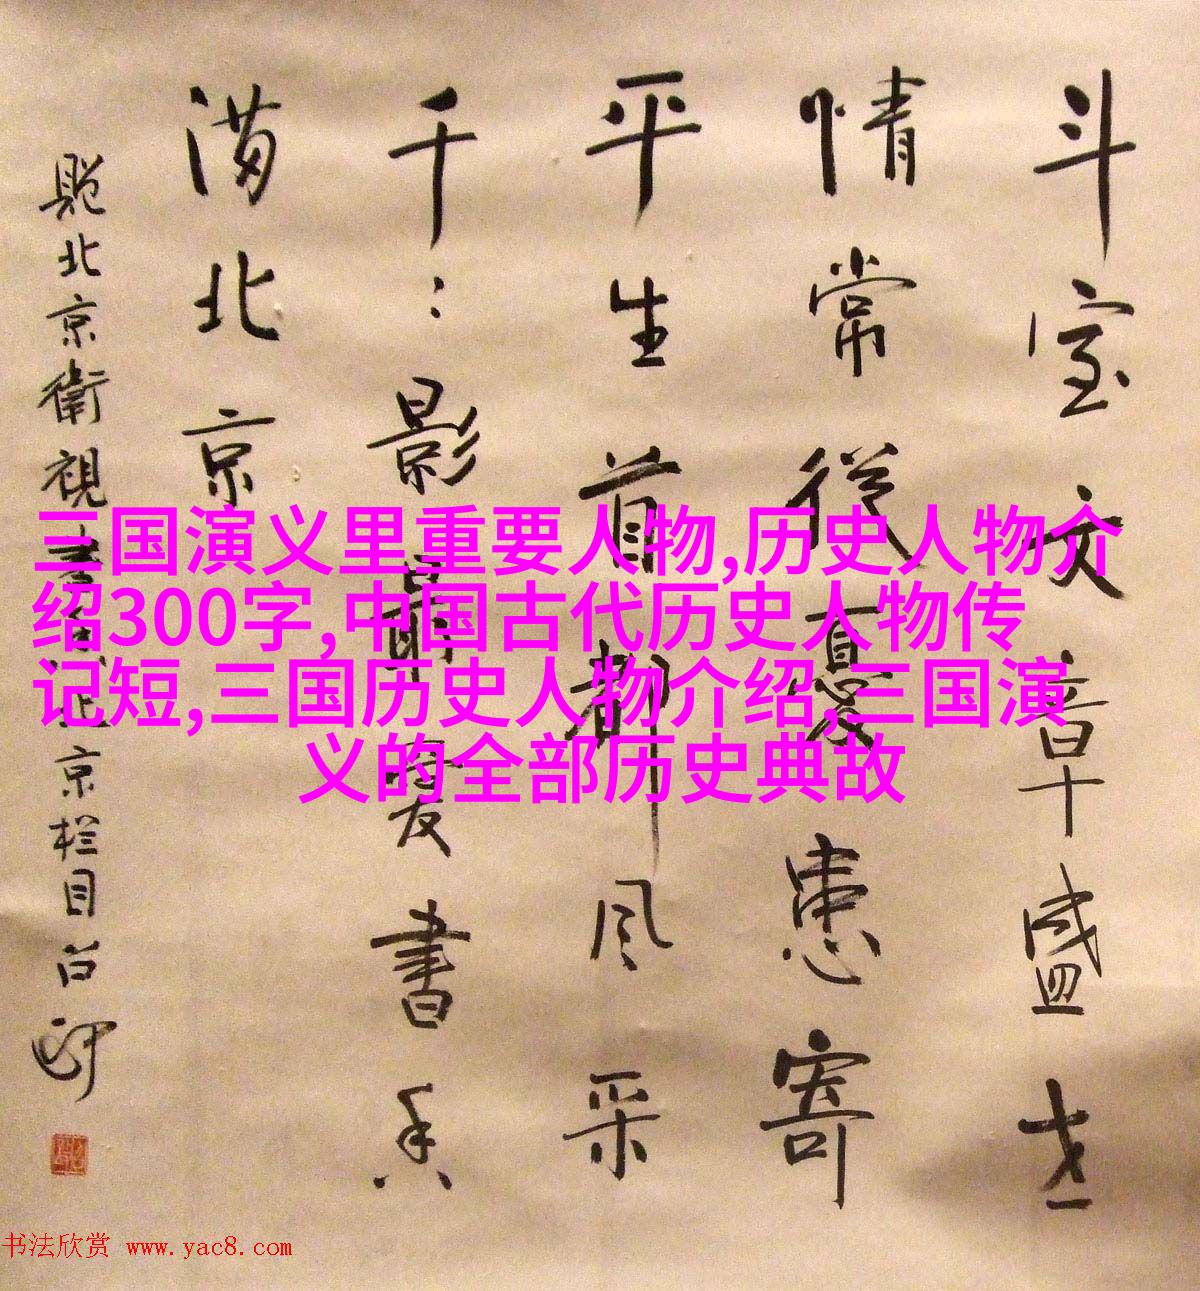 斗室文章盛世
情常從憂患寄
平生首都风采
千:影最爱書香
满北京
北京衛視書香北京栏目台
三国演义里重要人物,历史人物介
绍300字,中国古代历史人物传
记短,三国历史人物介绍,三国演
义的全部历史典故
书法欣赏 www.yac8.com